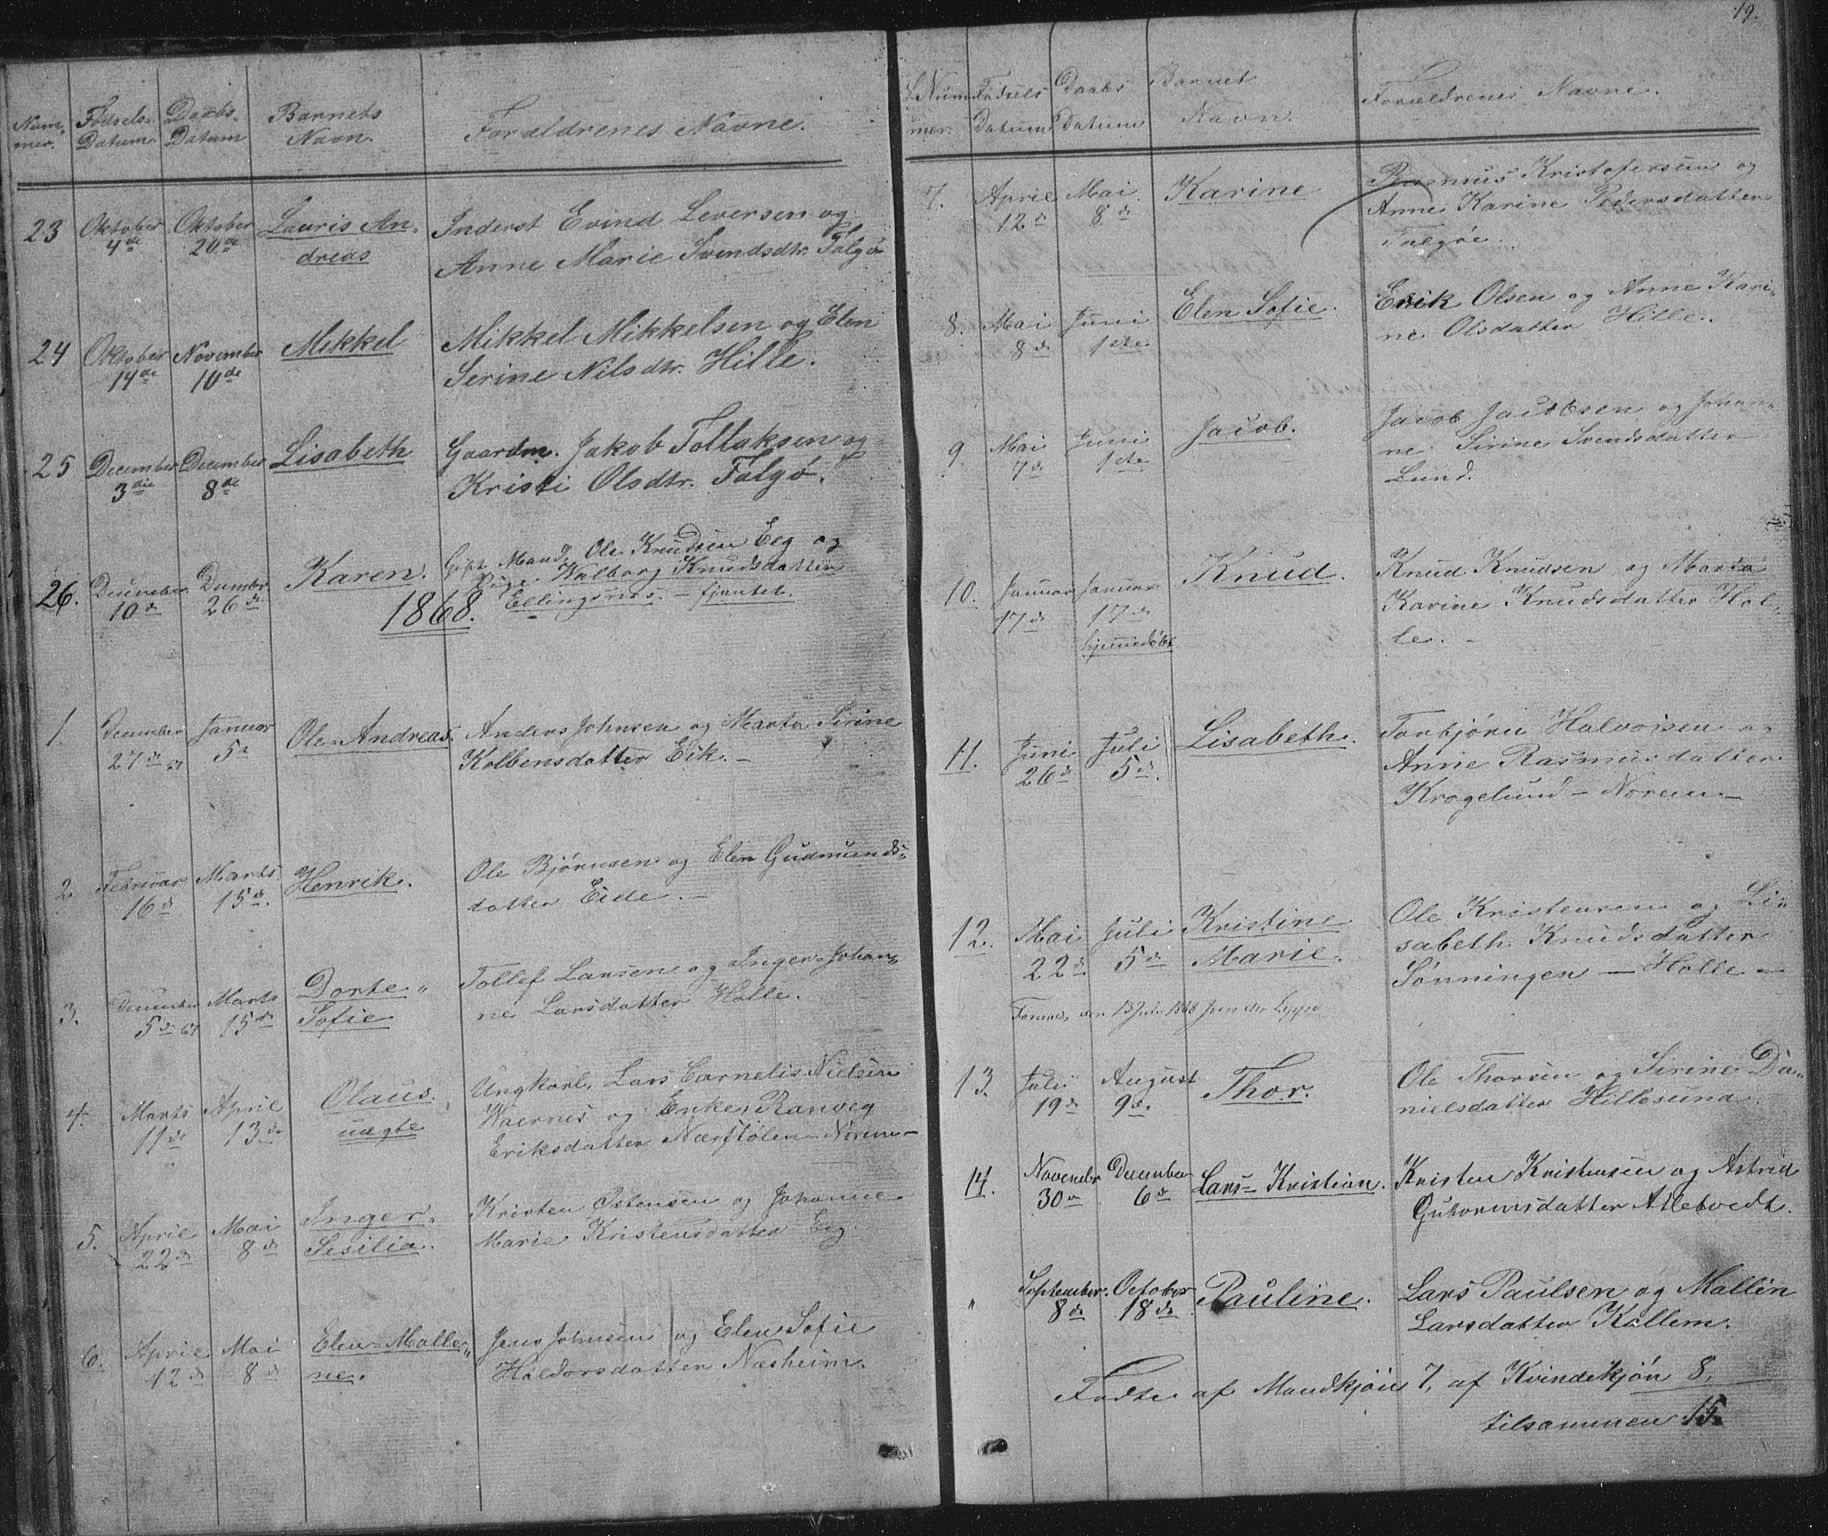 Num-
mer.
Fødsels-
Datum.
Daabs-
Datum
Barnets
Navn.
Forældrenes Navne.
23 Oktober 4de Oktober 20de Lauris An-
dreas
Inderst Evind Leversen og
Anne Marie Svendsdtr. Talgø
24 Oktober 14de November 10de Mikkel
Mikkel Mikkelsen og Elen
Serine Nilsdtr. Hille.
25 December 3die December 8de Lisabeth
Gaardm. Jakob Tollaksen og
Kristi Olsdtr. Talgø.
26. December 10d December 26d Karen.
Gift Mand, Ole Knudsen Eeg og
Pige Walborg Knudsdatter
Ellingsnes.
1868.
1. December 27d 67 Januar 5d Ole Andreas.
Anders Johnsen og Marta Sirine
Kolbensdatter Eik. –
2. Februar 16d Marts 15d. Henrik.
Ole Bjørnsen og Elen Gudmunds-
datter Eide. –
3. December 5d 67 Marts 15d Dorte
Sofie
Tollef Larsen og Inger Johan-
ne Larsdatter Halle.
4. Marts 11d April 13d Olaus.
uægte
Ungkarl, Lars Cornelis Nielsen
Waernes og Enke, Ranveg
Eriksdatter Nærstølen – Norem –
5. April 22d Mai 8d Inger
Sesilia.
Kristen Østensen og Johanne
Marie Kristensdatter Eeg.
6. April 12d Mai 8d Elen Malle-
ne.
Jens Johnsen og Elen Sofie
Haldorsdatter Næsheim.
19.
Num-
mer.
Fødsels
Datum
Daabs
datum
Barnet
Navn.
Forældrenes Navne.
7. April 12d Mai 8d Karine
Rasmus Kristofersen og
Anne Karine Pedersdatter
Talgøe.
8. Mai 8d Juni 1ste Elen Sofie.
Erik Olsen og Anne Kari-
ne Olsdatter Hille.
9. Mai 7d Juni 1ste Jacob.
Jacob Jacobsen og Johan-
ne Sirine Svendsdatter
Lund.
10. Januar 17d Januar 17d hjemmedøbt Knud.
Knud Knudsen og Marta
Karine Knudsdatter Hal-
le. –
11. Juni 26d Juli 5d. Lisabeth.
Torbjørn Halvorsen og
Anne Rasmusdatter
Krogelund – Norem –
12. Mai 22d Juli 5d Kristine
Marie.
Ole Kristensen og Li-
sabeth Knudsdatter
Sønningen – Halle –
den 13 Juli 1868
13. Juli 19d August 9d. Thor.
Ole Thorsen og Sirine Da-
nielsdatter Hillesund.
14. Novembr 30d December 6d Lars Kristian.
Kristen Kristensen og Astrid
Guttormsdatter Atletvedt.
" September 8d October 18d. Pauline.
Lars Paulsen og Mallin
Larsdatter Kallem.
Fødte af Mandkjøn 7, af Kvindekjøn 8,
tilsammen 15.